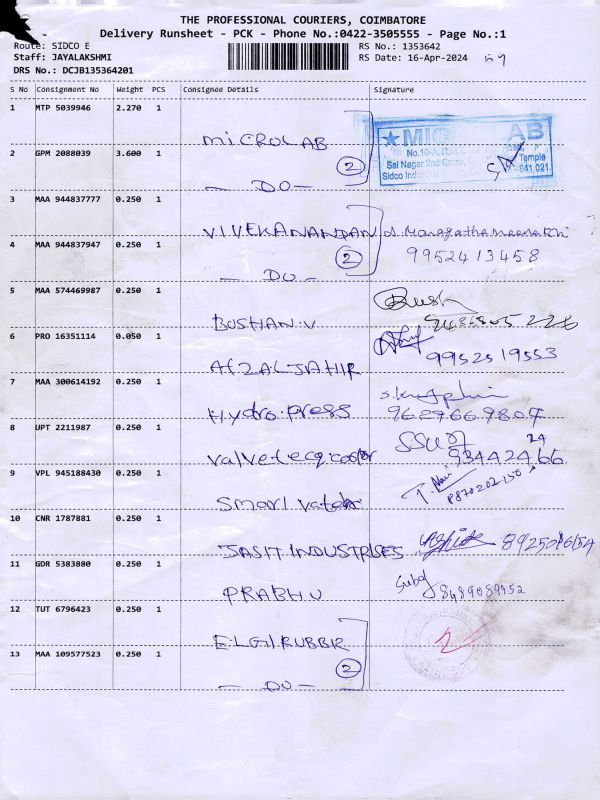 THE PROFESSIONAL COURIERS, COIMBATORE
Delivery Runsheet - PCK - Phone No.:0422-3505555 - Page No.:1
Route: SIDCO E
RS No.: 1353642
Staff: JAYALAKSHMI
RS Date: 16-Apr-2024
DRS No.: DCJB135364201
S No Consignment No Weight PCS Consignee Details Signature
1 MTP 5039946 2.270 1 MICROLAB
2 GPM 2088039 3.600 1 - DO - 2
No.10-A
Sai Nagar 2nd Cross, Temple
Sidco Indus 641 021
3 MAA 944837777 0.250 1 VIVEKANANDAN
4 MAA 944837947 0.250 1 - DO - 2 9952413458
5 MAA 574469987 0.250 1 BOSHAN.V
6 PRO 16351114 0.050 1 AFZALJAHIR 9952519553
7 MAA 300614192 0.250 1 Hydro.press 9629669807
8 UPT 2211987 0.250 1
9 VPL 945188430 0.250 1
10 CNR 1787881 0.250 1 JASIT.INDUSTRISES
11 GDR 5383880 0.250 1 PRABHU
12 TUT 6796423 0.250 1 ELGI.RUBBR
13 MAA 109577523 0.250 1 - DO - 2